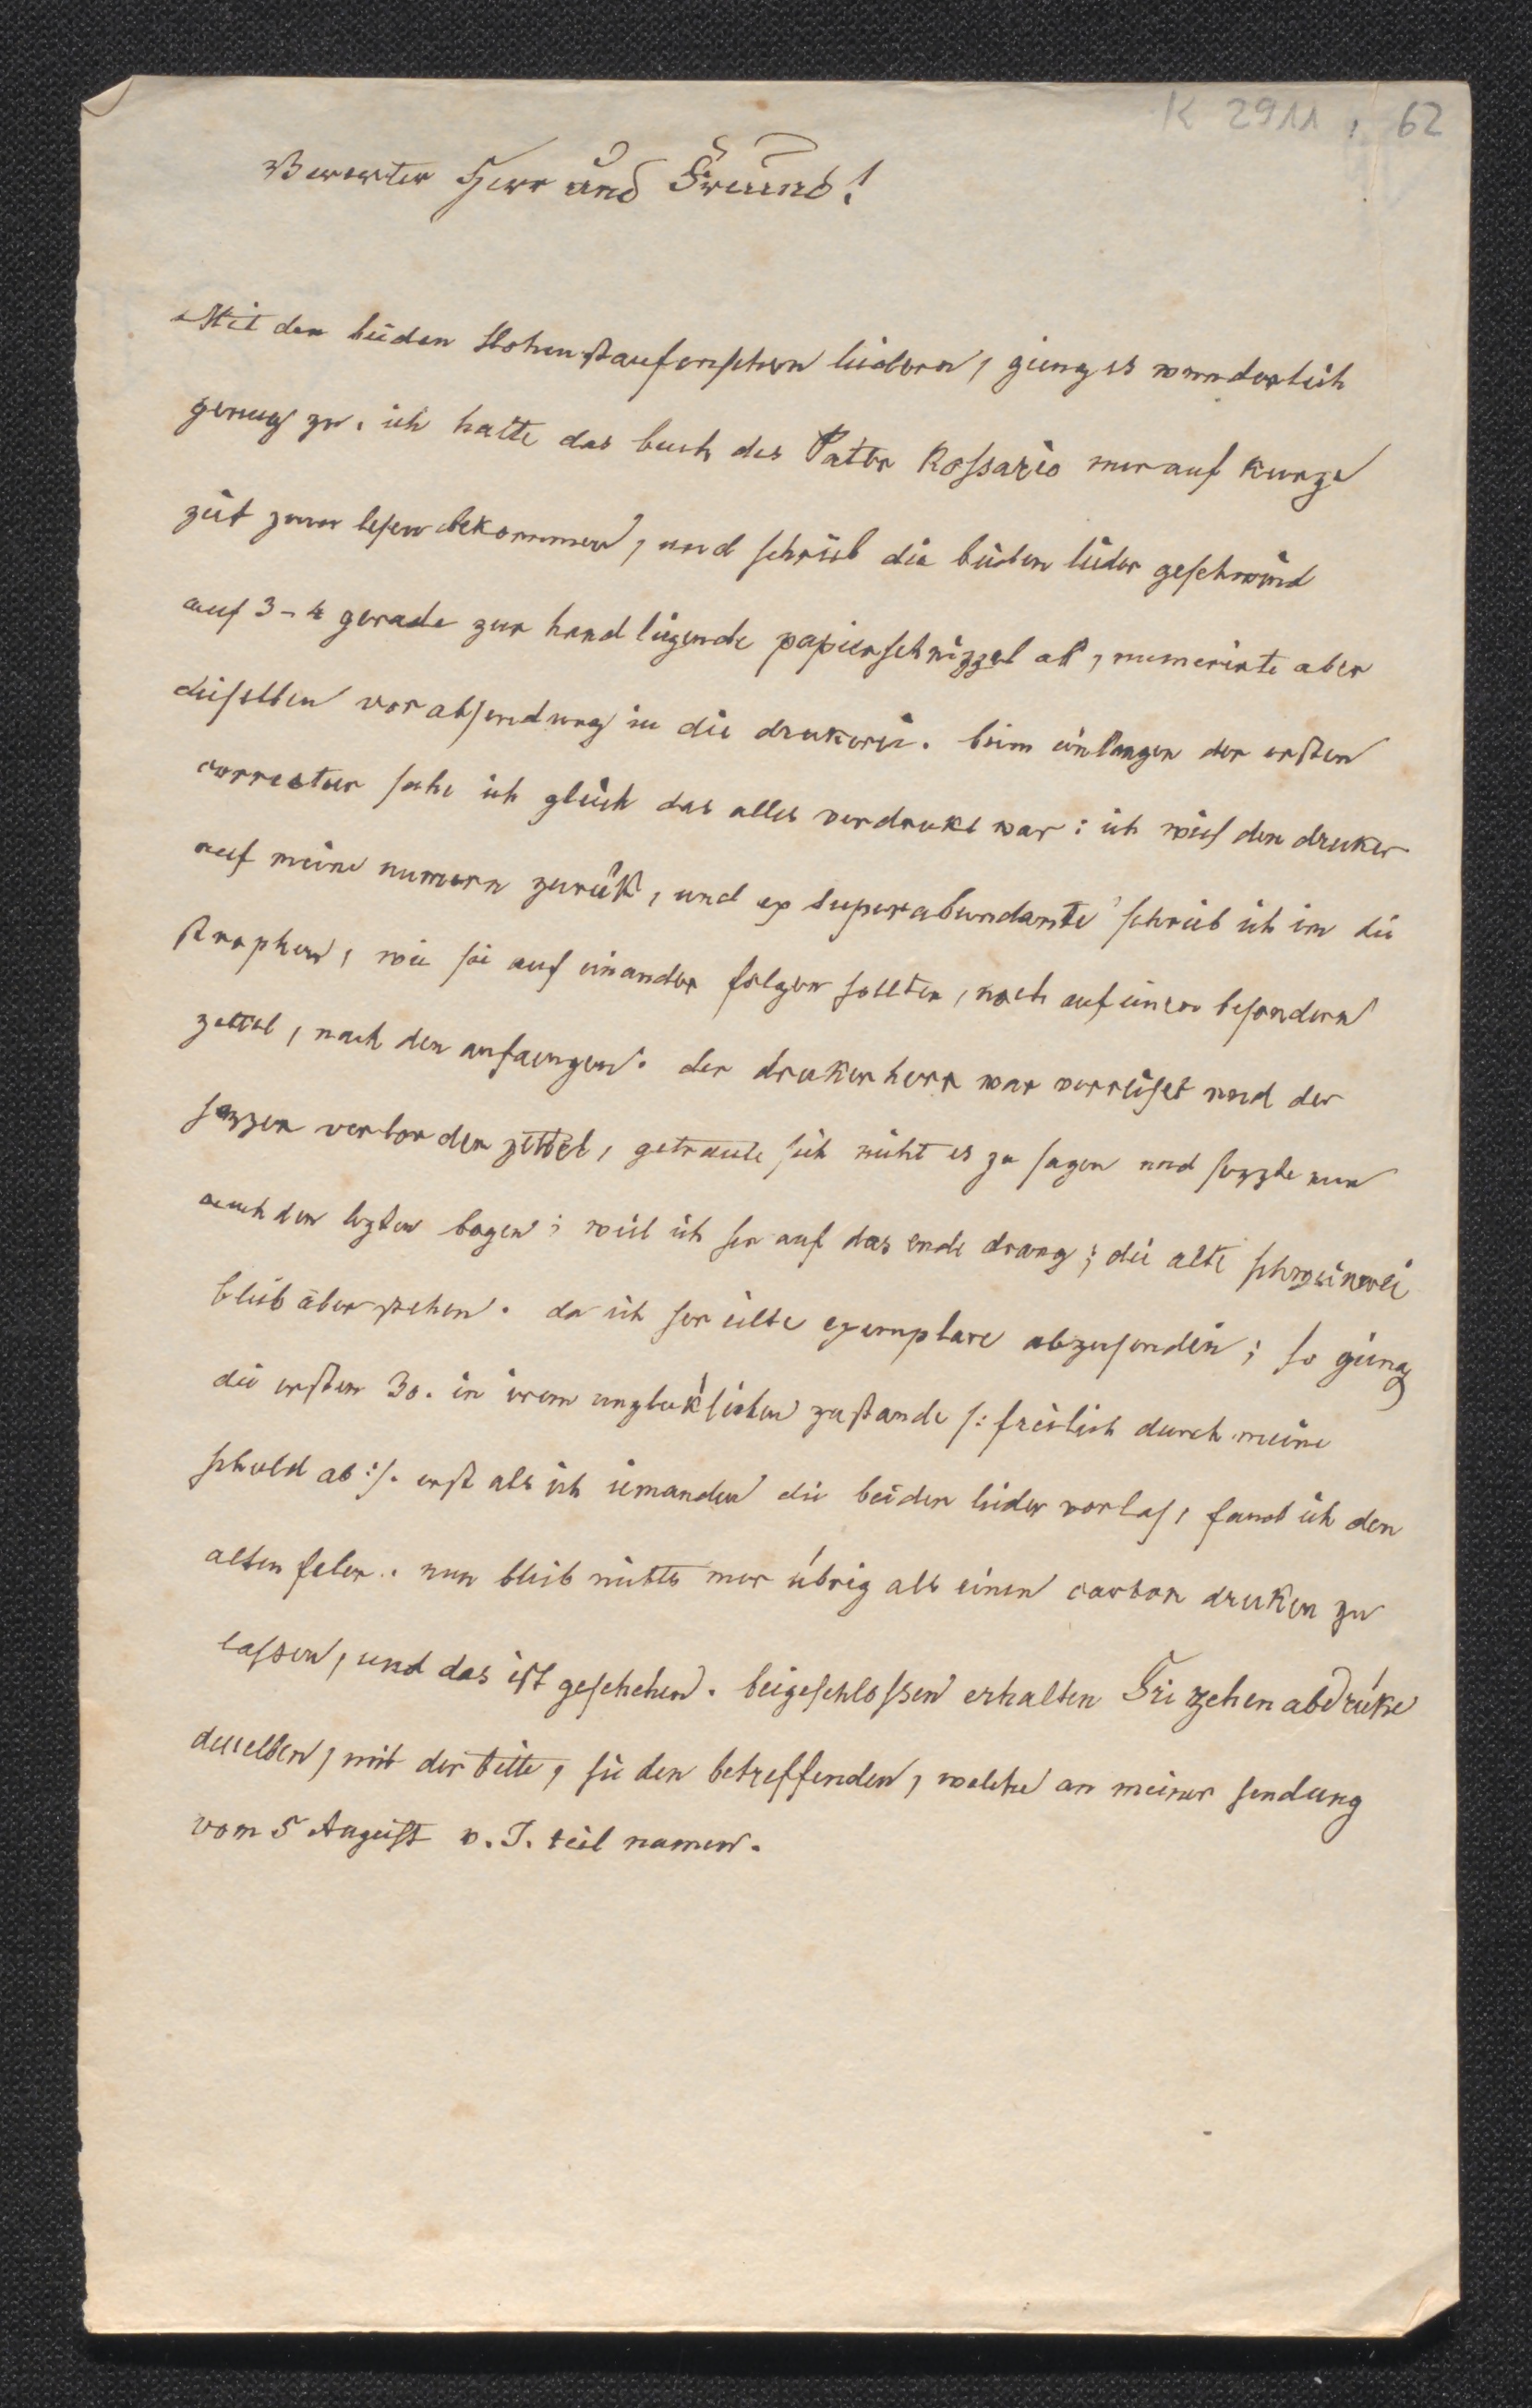 K 2911, 62
Verehrter Herr und Freund!
Mit den beiden Hohenstaufenschen liedern, gieng es wunderlich
genug zu. ich hatte das buch des Pater Rossario nur auf kurze
zeit zum lesen bekommen, und schrieb die beiden lieder geschwind
auf 3-4 gerade zur hand liegende papierschnizzel ab, numerirte aber
dieselben vor absendung in die drukerei. beim einlangen der ersten
correctur sahe ich gleich das alles verdrukt war: ich wies den druker
auf meine numern zurük, und ex superabundante schrieb ich im die
strophen, wie sie auf einander folgen sollten, noch auf einen besondern
zettel, nach den anfaengen. der drukerherr war verreiset und der
sezzer verlor den zettel, getraute sich nicht es zu sagen und sezzte nun
auch den lezten bogen; weil ich ser auf das ende drang; die alte
blieb aber stehen. da ich ser eilte exemplare abzusenden; so gieng
die ersten 30. in irem unglüklichen zustande /: freilich durch meine
schuld ab :/. erst als ich iemanden die beiden lieder vorlas, fand ich den
alten feler. nun blieb nichts mer übrig als einen carton druken zu
lassen, und das ist geschehen. beigeschlossen erhalten Sie zehen abdrüke
desselben, mit der bitte, sie den betreffenden, welche an meiner sendung
vom 5 August v. J. teil namen.